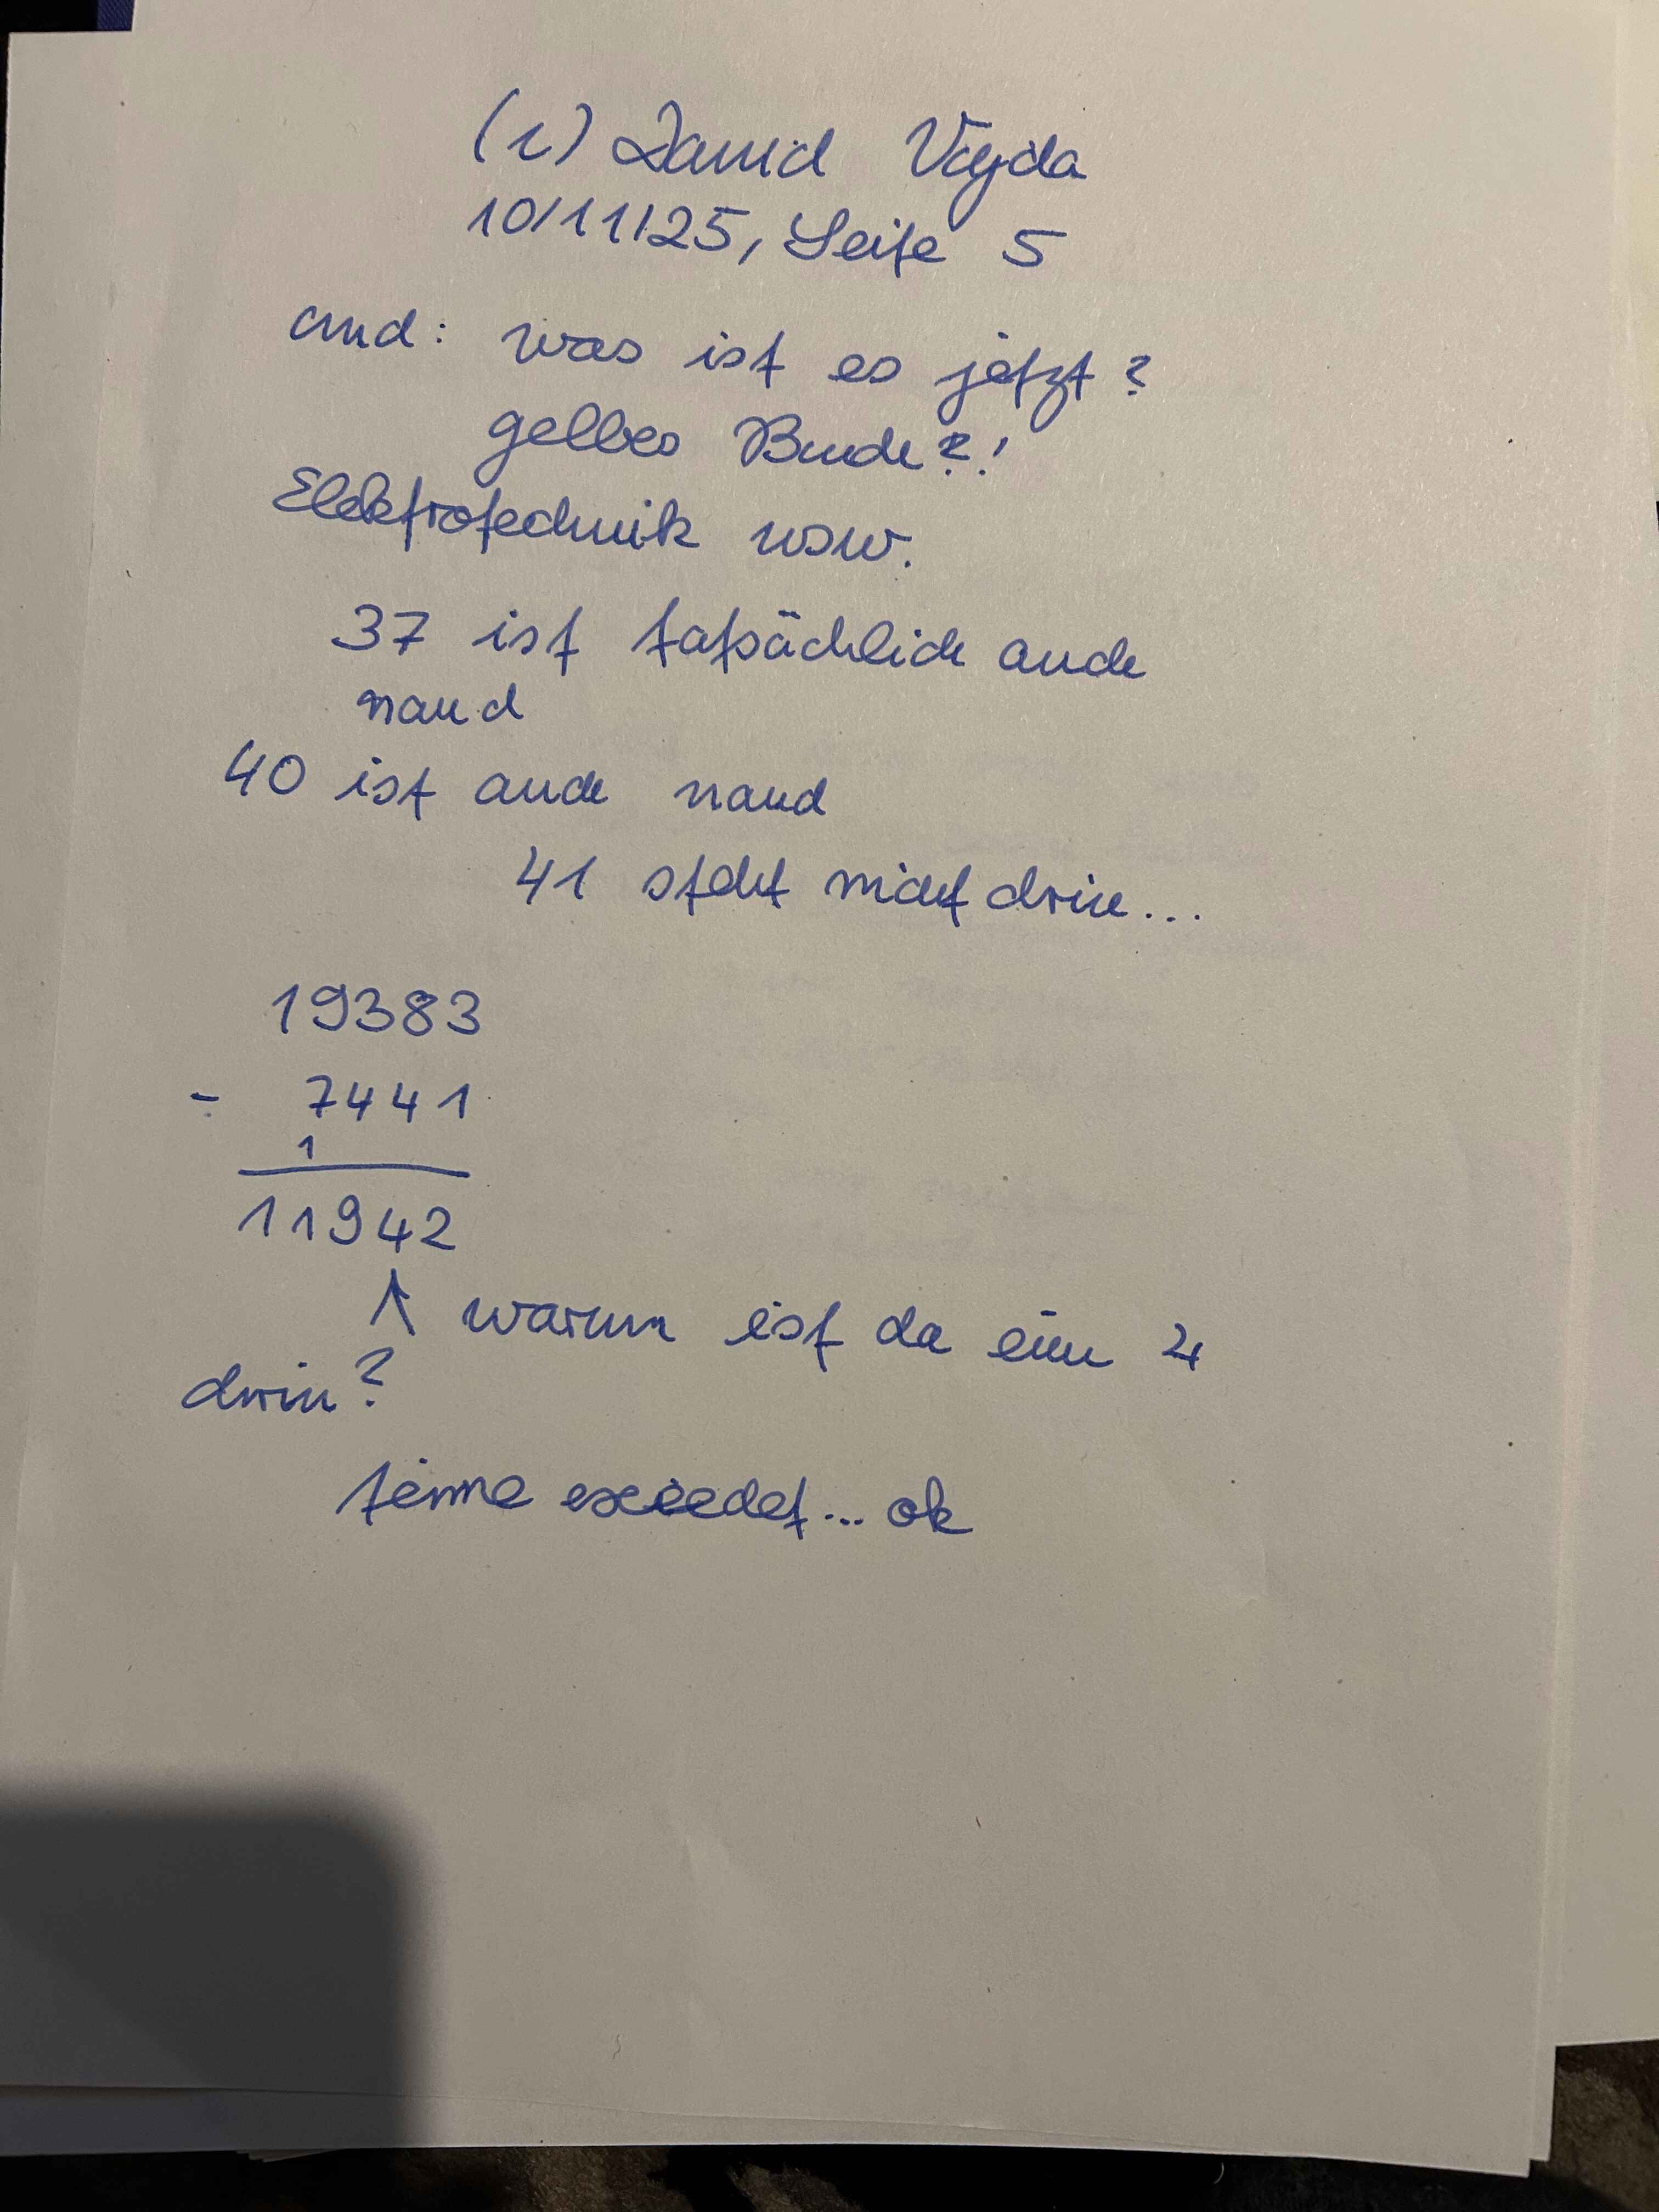 (c) David Vajda
10/11/25, Seite 5
and: was ist es jetzt?
gelbes Buch?!
Elektrotechnik usw.
37 ist tatsächlich auch
nand
40 ist auch nand
41 steht nicht drin...
19383
- 7441
1
11942
↑ warum ist da ein 4
drin?
time exceedet... ok